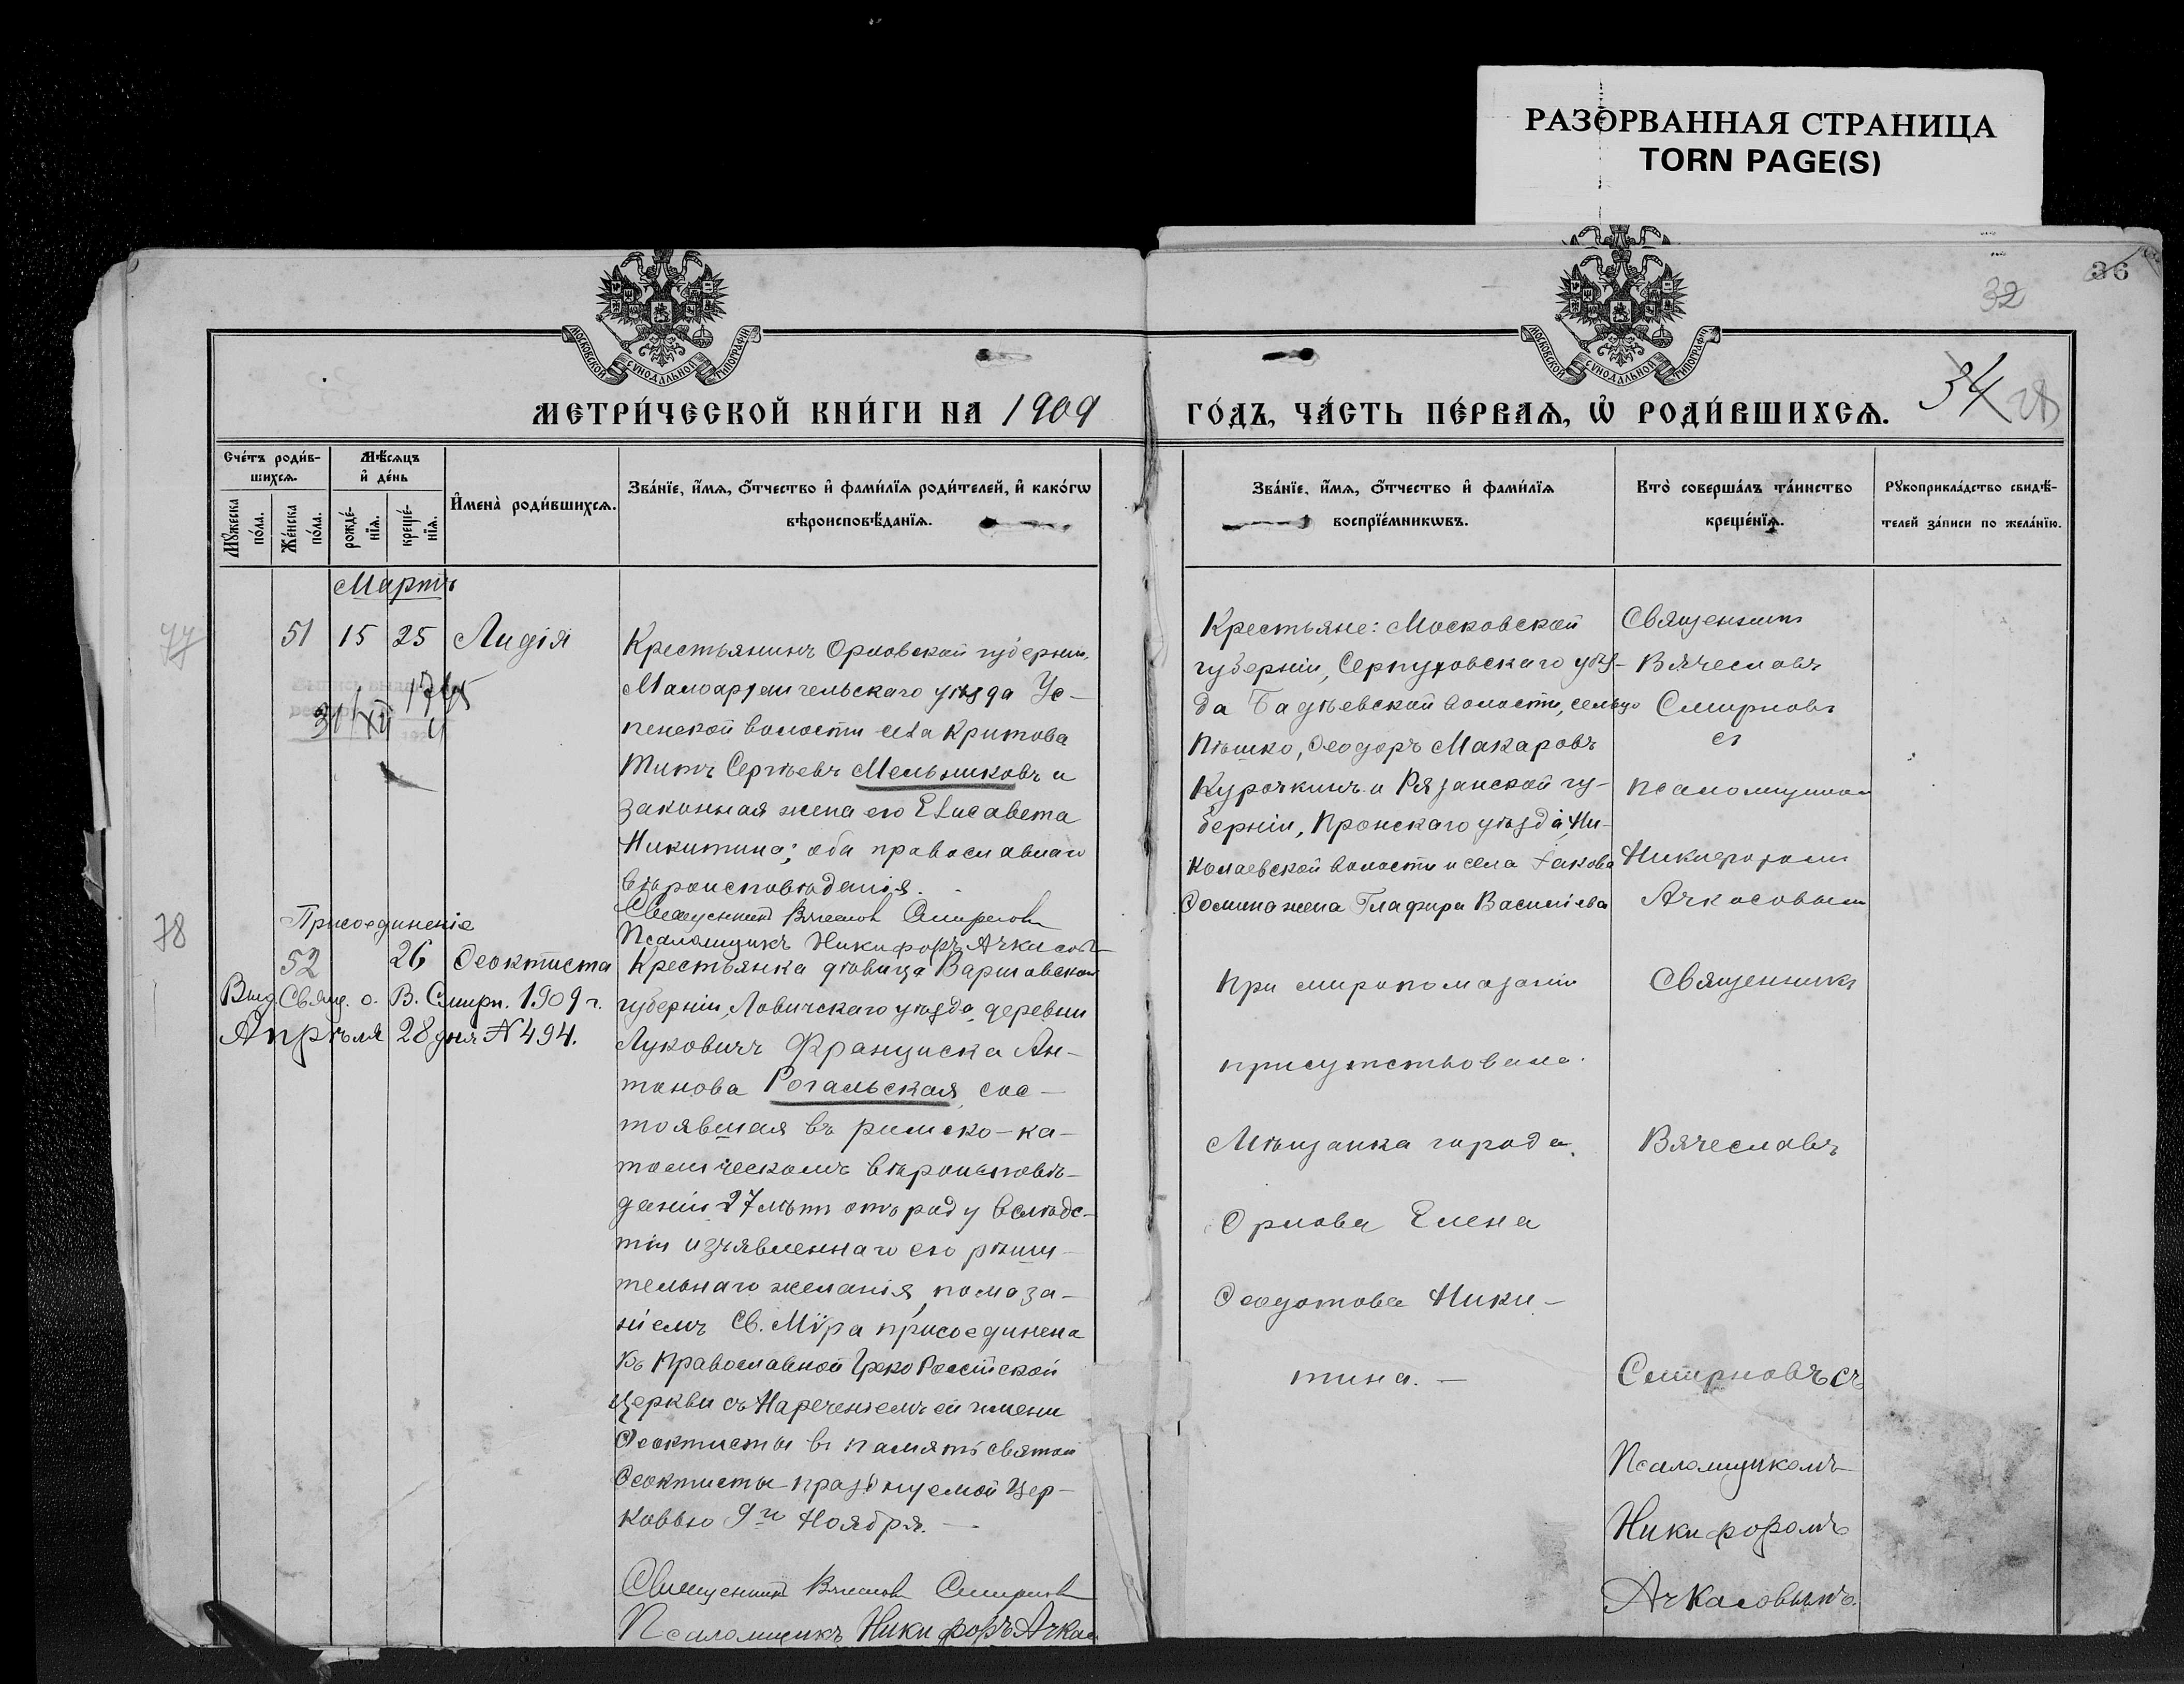 РАЗОРВАННАЯ СТРАНИЦА
TORN PAGE(S)
36
32
34
МОСКОВСКОЙ СѴНОДАЛЬНОЙ ТИПОГРАФІИ
МОСКОВСКОЙ СѴНОДАЛЬНОЙ ТИПОГРАФІИ
МЕТРИ́ЧЕСКОЙ КНИ́ГИ НА 1909
ГО́ДЪ, ЧА́СТЬ ПЕ́РВАѦ, Ѡ҆ РОДИ́ВШИХСѦ.
Сче́тъ роди́в-
шихсѧ.
Мꙋ́жеска по́ла.
Же́нска по́ла.
Мѣ́сѧцъ
и҆ де́нь
рожде́-
нїѧ.
креще́-
нїѧ.
И҆мена̀ роди́вшихсѧ.
Зва́нїе, и҆́мѧ, ѻ҆́тчество и҆ фами́лїѧ роди́телей, и҆ како́гѡ
вѣроисповѣ́данїѧ.
Зва́нїе, и҆́мѧ, ѻ҆́тчество и҆ фами́лїѧ
воспрїе́мникѡвъ.
Кто̀ соверша́лъ та́инство
креще́нїѧ.
Рꙋкоприкла́дство свидѣ́-
телей за́писи по жела́нїю.
Мартъ
77
51 15 25 Лидія
31/XII
Крестьянинъ Орловской губерніи,
Малоархангельскаго уѣзда Ус-
пенской волости села Критова
Титъ Сергѣевъ Мельниковъ и
законная жена его Елисавета
Никитина; оба православнаго
вѣроисповѣданія.
Священникъ Вячеславъ Смирновъ
Псаломщикъ Никифоръ Ачкасовъ
Крестьяне: Московской
губерніи, Серпуховскаго уѣз-
да Бадѣевской волости, сельцо
Пѣшко, Ѳеодоръ Макаровъ
Курочкинъ и Рязанской гу-
берніи, Пронскаго уѣзда, Ни-
колаевской волости и села
Ѳомина жена Глафира Василіева
Священникъ
Вячеславъ
Смирновъ
съ
псаломщикомъ
Никифоромъ
Ачкасовымъ
78
Присоединеніе
52 26 Ѳеоктиста
Выд. Свящ. о. В. Смирн. 1909 г.
Апрѣля 28 дня № 494.
Крестьянка дѣвица Варшавской
губерніи, Ловичскаго уѣзда, деревни
Луковичъ Франциска Ан-
тонова Рогальская, сос-
тоявшая въ римско-ка-
толическомъ вѣроисповѣ-
даніи 27 лѣтъ отъ роду вслѣдс-
тіи изъявленнаго ею рѣши-
тельнаго желанія, помаза-
ніемъ Св. Мѵра присоединена
къ Православной Греко Россійской
Церкви съ Нареченіемъ ей имени
Ѳеоктисты въ память святой
Ѳеоктисты празднуемой Цер-
ковью 9го Ноября. —
Священникъ Вячеславъ Смирновъ
Псаломщикъ Никифоръ Ачкас
При миропомазаніи
присутствовала
Мѣщанка города
Орлова Елена
Ѳеодотова Ники-
тина. —
Священникъ
Вячеславъ
Смирновъ съ
Псаломщикомъ
Никифоромъ
Ачкасовымъ.